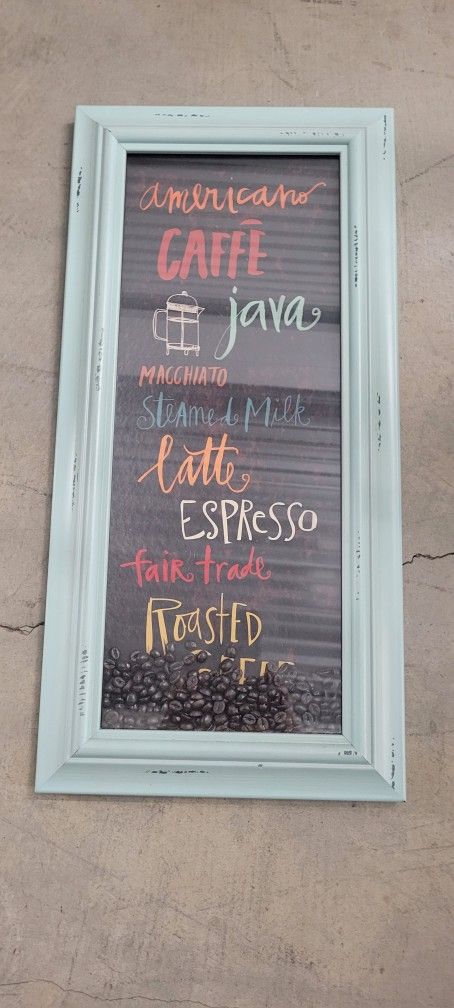 americano
CAFFĒ
java
MACCHIATO
Steamed Milk
latte
ESPRESSO
fair trade
ROASTED